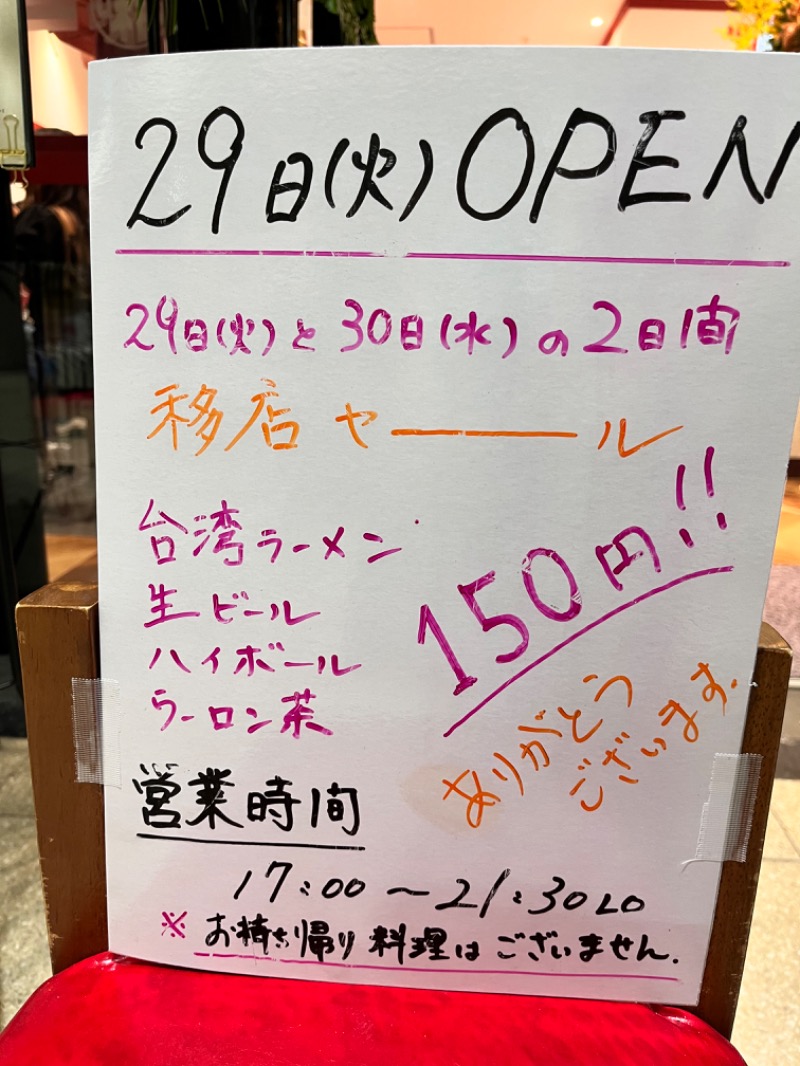 29日(火)OPEN
29日(火)と30日(水)の2日間
移店セール
台湾ラーメン
生ビール
ハイボール
ウーロン茶
150円!!
ありがとう
ございます.
営業時間
17:00～21:30LO
※お持ち帰り料理はございません.